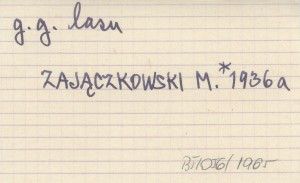 g. g. lasu
ZAJĄCZKOWSKI M.* 1936a
BI 1056/1965